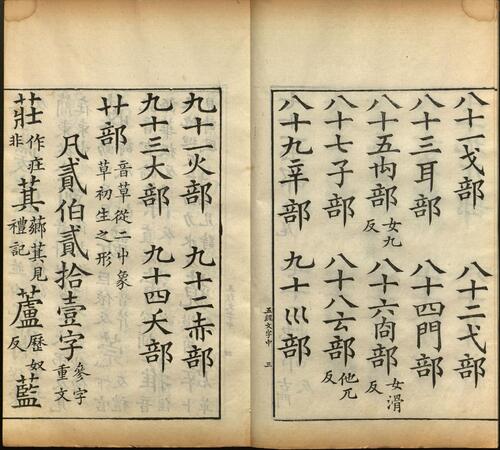 八十一戈部　八十二弋部
八十三耳部　八十四門部
八十五禸部女九反　八十六㕯部女滑反
八十七子部　八十八𠫓部他兀反
八十九部　九十巛部
五經文字中　三
九十一火部　九十二赤部
九十三大部　九十四夭部
艹部音草從二屮象草初生之形
凡貳伯貳拾壹字參字重文
莊作疰非萁薌萁見禮記蘆歷奴反藍